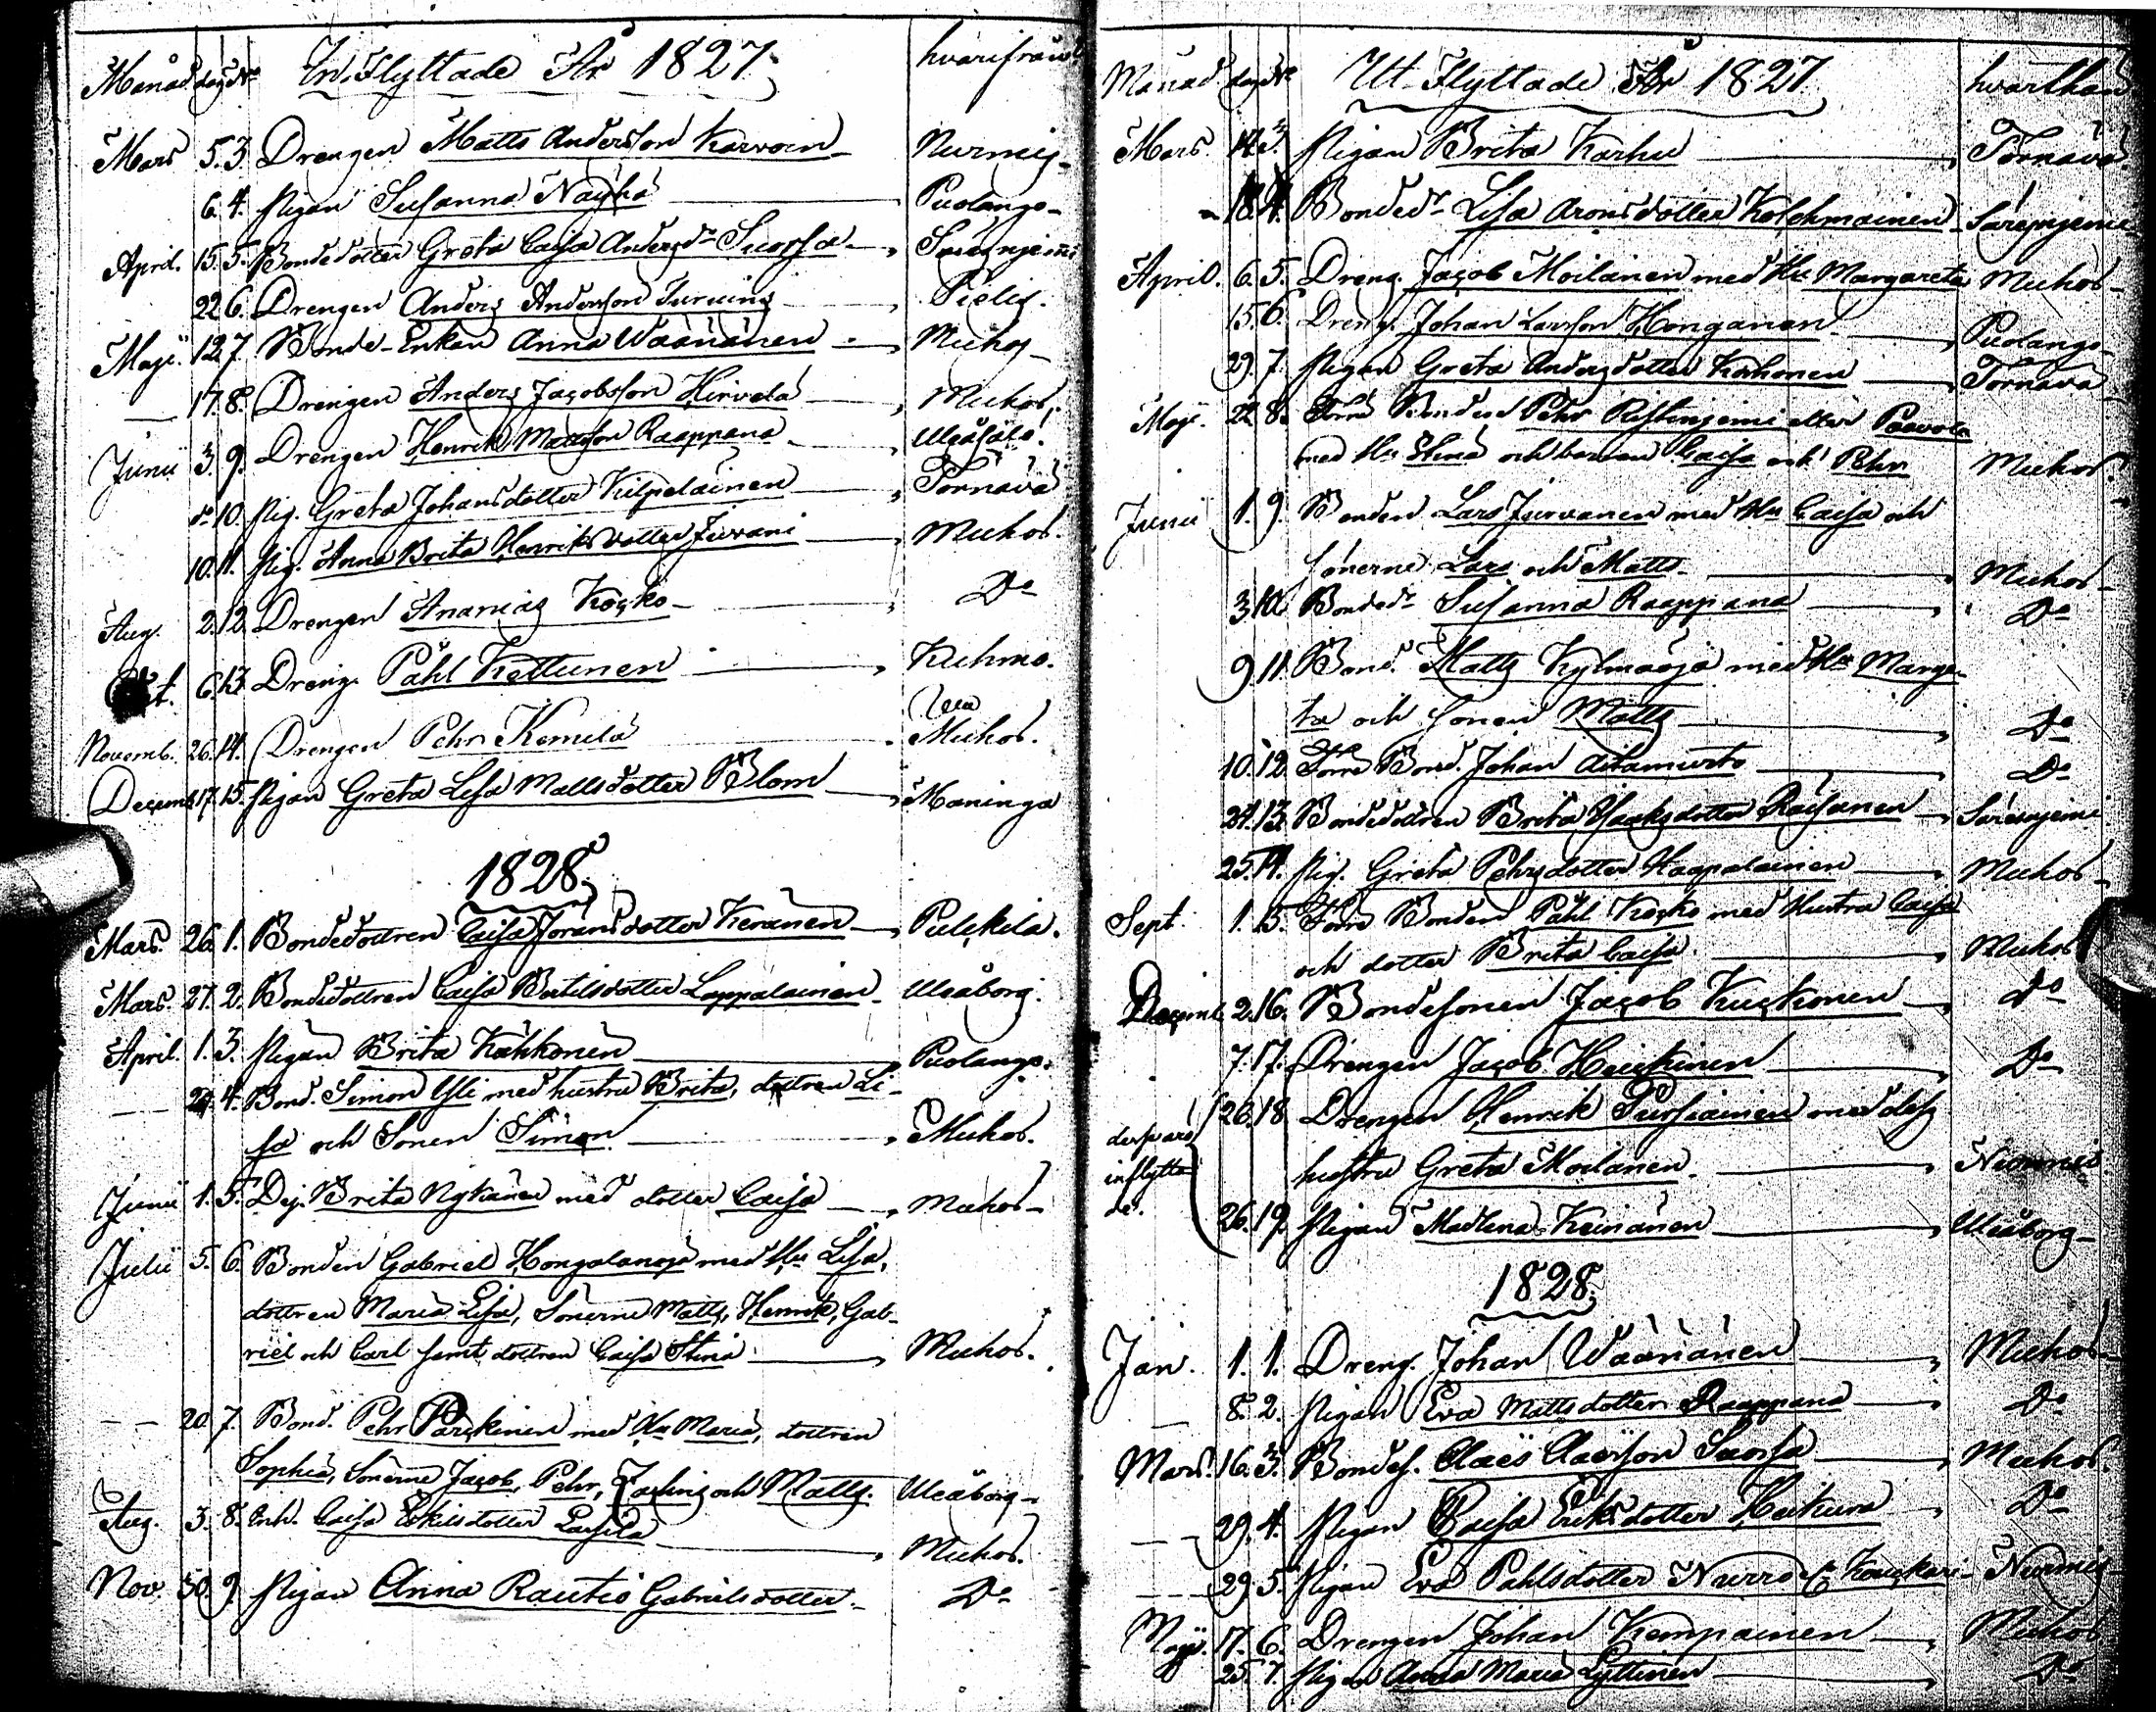 Månad dag N:o In Flyttade År 1827 hvarifrån
Mars 5. 3. Drengen Matts Andersson Karvoin Nurmis
6. 4. Pigan Susanna Nayha Puolango
April. 15. 5. Bondedotter Greta Caisa Andersd:r Suorsa Säresnjemi
22 6. Drengen Anders Andersson Turuins Pielis.
Maji. 12. 7. Bonde-Enkan Anna Wäänänen Muhos
17. 8. Drengen Anders Jacobsson Hirvelä Muhos.
Junii 3. 9. Drengen Henrik Mattsson Raappana Uleåsalo.
d:o 10. Pig. Greta Johansdotter Kilpeläinen Tornävä
10. 11. Pig. Anna Brita Henriksdotter Jurvani Muhos.
Aug. 2. 12. Drengen Ananias Kosko D:o
Oct. 6. 13. Dreng. Påhl Kettunen Kuhmo.
Novemb. 26. 14. Drengen Pehr Kemilä Muhos.
Decemb. 17. 15. Pigan Greta Lisa Mattsdotter Blom Maninga
1828.
Mars 26. 1. Bondedottren Caisa Jöransdotter Keränen Pulkila.
Mars. 27. 2. Bondedottren Caisa Bertilsdotter Lappalainen Uleåborg.
April. 1. 3. Pigan Brita Kähkönen Puolango.
24. 4. Bond. Simon Yli med hustru Brita, dottren Li-
sa och Sonen Simon Muhos.
Junii 1. 5. Dej. Brita Nykänen med dotter Caisa Muhos
Julii 5. 6. Bonden Gabriel Hongalanoja med Hu Lisa,
dottren Maria Lisa, Sönerne Matts, Henrik, Gab-
riel och Carl samt dottren Caisa Stina Muhos.
20. 7. Bond. Pehr Parckinen med Hu Maria, dottren
Sophia, Sönerne Jacob, Pehr, Zachris och Matts. Uleåborg
Aug. 3. 8. Enk. Caisa Eskilsdotter Laisila Muhos.
Nov. 30. 9. Pigan Anna Rautio Gabrielsdotter D:o
Månad dag N:o Ut-Flyttade År 1827 hvarthän
Mars. 14. 3. Pigan Brita Karhu Tornävä
18. 4. Bonded:r Lisa Aronsdotter Kolehmainen Säresnjemi
April. 6. 5. Dreng. Jacob Moilanen med Hu Margareta Muhos
15. 6. Dreng. Johan Larsson Honganen Puolango
29. 7. Pigan Greta Andersdotter Korhonen Tornävä
Maji. 22 8. Förre Bonden Pehr Ristinjemi eller Paavola
med Hu Stina och barnen Caisa och Pehr Muhos
Junii 1. 9. Bonden Lars Jurvanen med Hu Caisa och
Sönerne Lars och Matts Muhos
3. 10. Bonded:r Susanna Raappana D:o
9. 11. Bond. Matts Kylmäoja med Hu Marga-
ta och Sonen Matts D:o
10. 12. Förre Bond. Johan Aitamurto D:o
24. 13. Bondedottren Brita Isaksdotter Räisänen Säresnjemi
25. 14. Pig. Greta Pehrsdotter Haapalainen Muhos
Sept. 1. 15. Förre Bonden Påhl Kosko med Hustru Caisa
och dotter Brita Caisa. Muhos
Decemb. 2. 16. Bondesonen Jacob Kuskonen D:o
7. 17. Drengen Jacob Heickinen D:o
26. 18. Drengen Henrik Pursiainen med dess
hustru Greta Moilanen. Nurmis
inflytta
de.
26. 19. Pigan Madlena Keinänen Uleåborg
1828.
Jan. 1. 1. Dreng. Johan Wäänänen Muhos
8. 2. Pigan Eva Mattsdotter Raappana D:o
Mars. 16. 3. Bondes. Claës Claësson Suorsa Muhos.
29. 4. Pigan Caisa Eriksdotter Heikura D:o
29. 5. Pigan Eva Påhlsdotter Nurro Nurmis
Maji. 17. 6. Drengen Johan Kempainen Muhos
25. 7. Pigan Anna Maria Lyttinen D:o